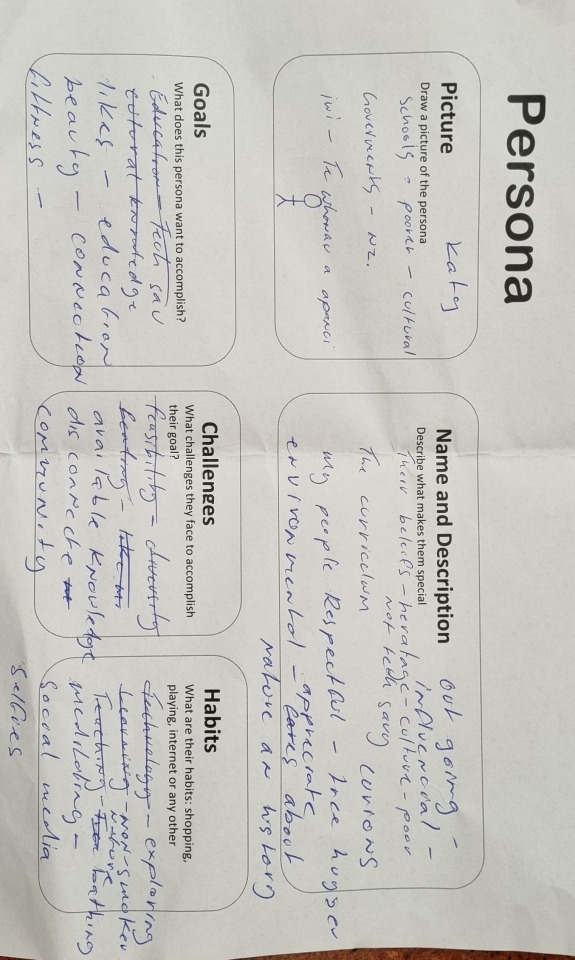 Persona
Picture
Katy
Draw a picture of the persona
Schools = poorer - cultural
Governments - NZ.
iwi - Te whanau a apanui
Name and Description
out going -
Describe what makes them special
influencial, -
Their beleifs - heratage - culture - poor
not tech savy
The curriculum
curious
my people Respectful - tree hugger
environmental - appreciate
cares about
nature an history
Goals
What does this persona want to accomplish?
Education - Tech sav
cultural knowledge
likes - education
beauty - connection
fittness -
Challenges
What challenges they face to accomplish
their goal?
feasibility - diversity
available knowledge
disconnected
community
Habits
What are their habits: shopping,
playing, internet or any other
technology - exploring
Learning - non-smoker
nature
Teaching - bathing
meditating -
Social media
selfies